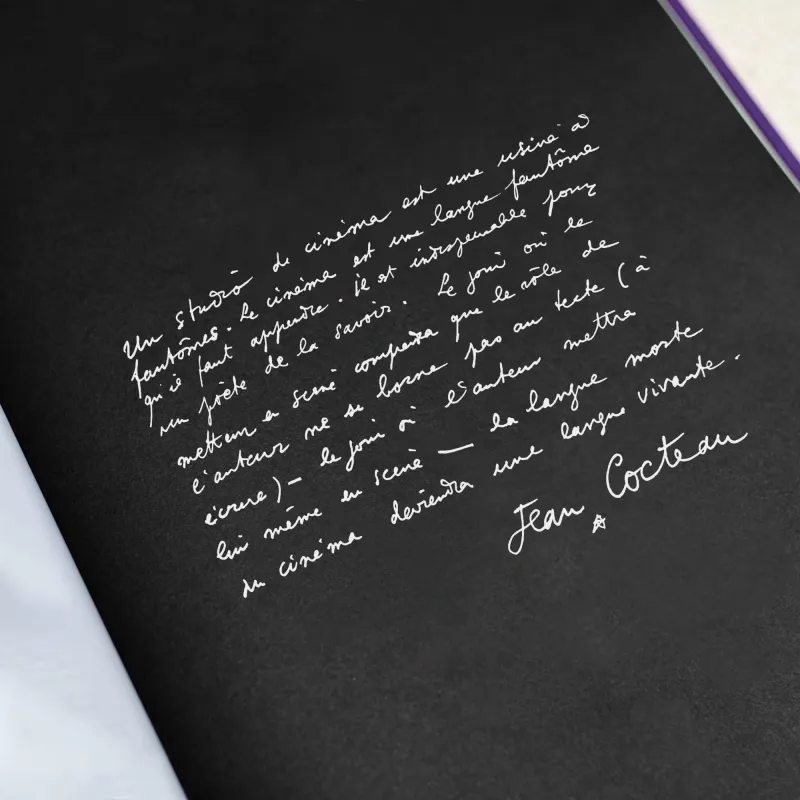 Un studio de cinéma est une usine à
fantômes. Le cinéma est une langue fantôme
qu'il faut apprendre. Il est indispensable pour
un poète de la savoir. Le jour où le
metteur en scène comprendra que le rôle de
l'auteur ne se borne pas au texte (à
écrire) — le jour où l'auteur mettra
lui même en scène — la langue morte
du cinéma deviendra une langue vivante.
Jean Cocteau